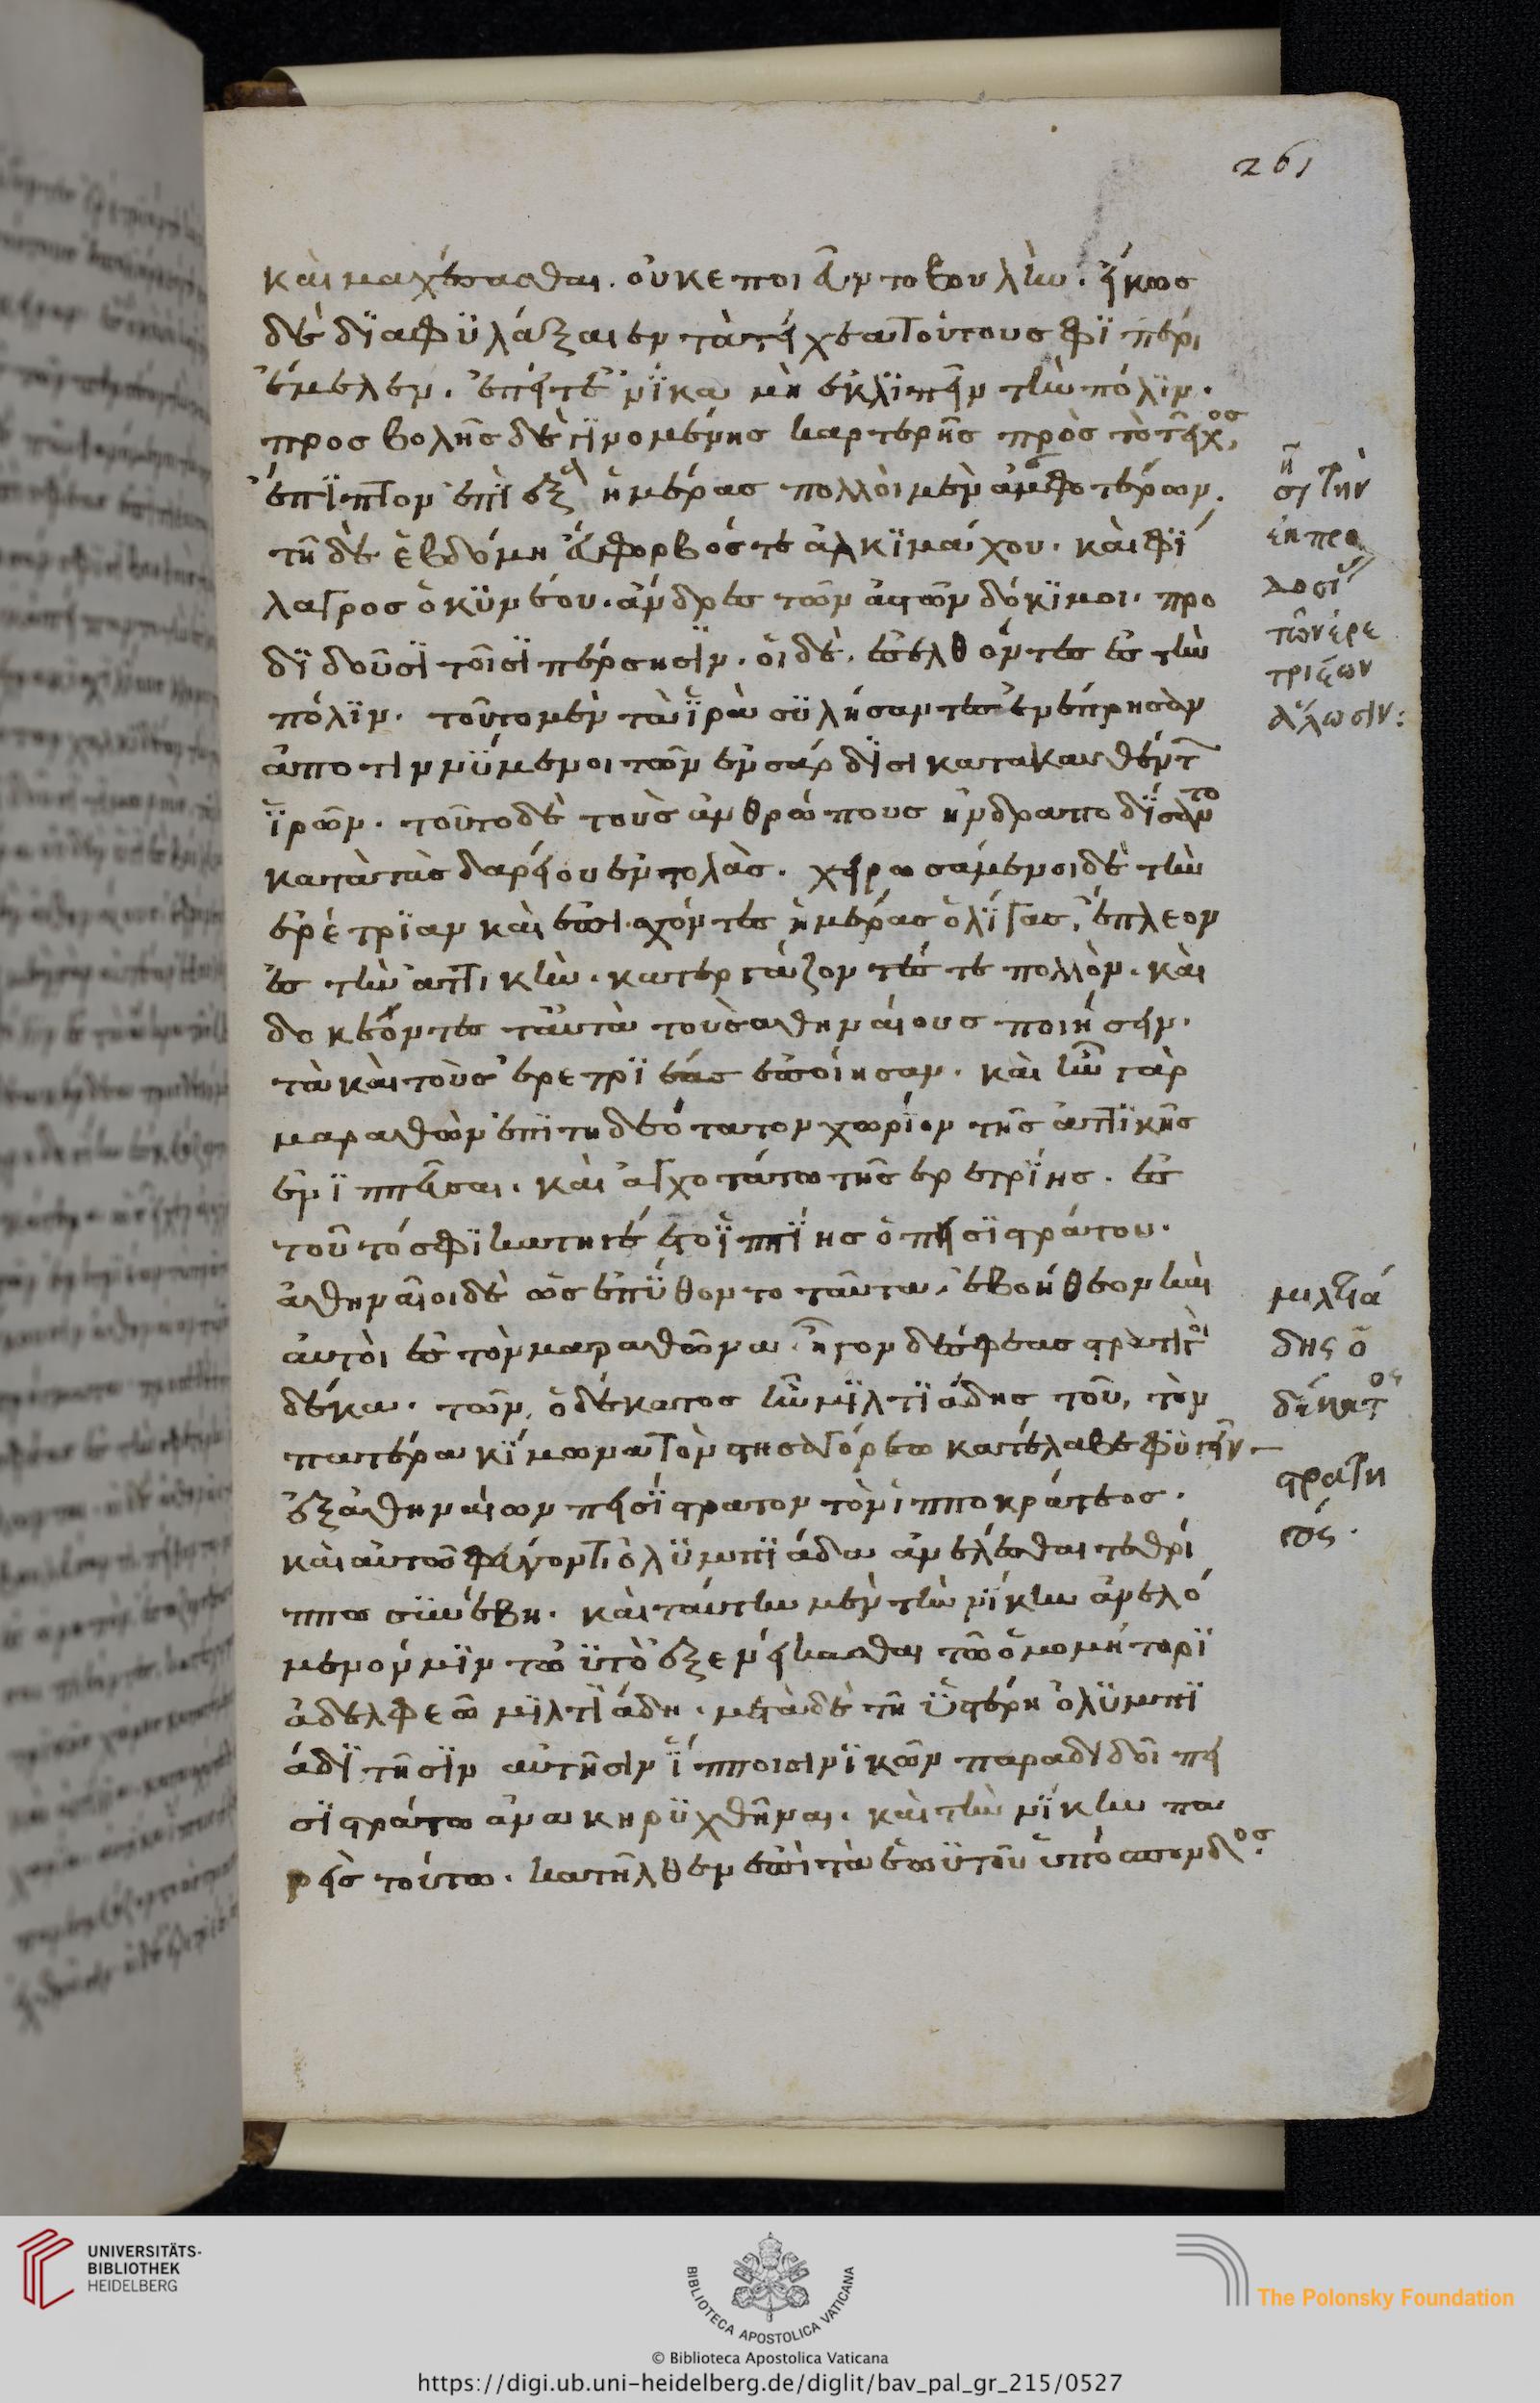 261
καὶ μαχέσασθαι. οὐκ εποιεῦντο βουλὴν. εἴ κως
δὲ διαφυλάξαιεν τὰ τείχεα τούτου σφι πέρι
ἔμελεν. ἐπείτε ἐνίκα μὴ ἐκλιπεῖν τὴν πόλιν.
προσβολῆς δὲ γινομένης καρτερῆς πρὸς τὸ τεῖχος,
ἔπιπτον ἐπὶ ἓξ ἡμέρας πολλοὶ μὲν ἀμφοτέρων.
τῆ δὲ ἑβδόμη ἔυφορβός τε ἀλκιμάχου. καὶ φί
λαγρος ὁ κυνέου. ἄνδρες τῶν ἀστῶν δόκιμοι. προ
διδοῦσι τοῖσι πέρσησιν. ὁι δὲ. ἐσελθόντες ἐς τὴν
πόλιν. τοῦτο μὲν τὰ ἱρὰ συλήσαντες ἐνέπρησαν
ἀποτιννύμενοι τῶν ἐν σάρδισι κατακαυθέντ
ἱρῶν. τοῦτο δὲ τοὺς ἀνθρώπους ἠνδραποδίσαντο
κατὰ τὰς δαρείου ἐντολάς. χειρωσάμενοι δὲ τὴν
ἐρέτριαν καὶ ἐπισχόντες ἡμέρας ὀλίγας, ἔπλεον
ἐς τὴν ἀττικὴν. κατεργάζοντές τε πολλὸν. καὶ
δοκέοντες ταὐτὰ τοὺς ἀθηναίους ποιήσειν.
τὰ καὶ τοὺς ἐρετριέας ἐποίησαν. καὶ ἦν γὰρ
μαραθὼν ἐπιτηδεότατον χωρίον τῆς ἀττικῆς
ἐνιππεῦσαι. καὶ ἀγχοτάτω τῆς ἐρετρίης. ἐς
τοῦτό σφι κατηγέετο ἱππίης ὁ πεισιστράτου.
ἀθηναῖοι δὲ ὡς ἐπύθοντο ταῦτα, ἐβοήθεον καὶ
ἀυτοὶ ἐς τὸν μαραθῶνα. ἦγον δέ σφεας στρατηγοὶ
δέκα. τῶν, ὁ δέκατος ἦν μιλτιάδης τοῦ, τὸν
πατέρα κίμωνα τὸν στησαγόρεω κατέλαβε φυγεῖν
ἐξ ἀθηναίων πεισίστρατον τὸν ἱπποκράτεος.
καὶ αὐτῶ φεύγοντι ὀλυμπιάδα ἀνελέσθαι τεθρί
ππω συνέβη. καὶ ταύτην μὲν τὴν νίκην ἀνελό
μενόν μιν τωὐτὸ ἐξενείκασθαι τῶ ὁμομήτορι
ἀδελφεῶ μιλτιάδη. μετὰ δὲ τῆ ὑστέρη ὀλυμπι
άδι τῆσιν αὐτῆσιν ἵπποισι νικῶν παραδιδοῖ πει
σιστράτω ἀνακηρυχθῆναι. καὶ τὴν νίκην πα
ρεὶς τούτω. κατῆλθεν ἐπὶ τὰ ἑωυτοῦ ὑπόσπονδος.
τὴν
ἐκ προ
δοσί
τῶν ἐρε
τριέων
ἅλωσιν:
μιλτιά
δης ὁ
δέκατος
στρατη
γός.
UNIVERSITÄTS-
BIBLIOTHEK
HEIDELBERG
BIBLIOTECA APOSTOLICA VATICANA
The Polonsky Foundation
© Biblioteca Apostolica Vaticana
https://digi.ub.uni-heidelberg.de/diglit/bav_pal_gr_215/0527